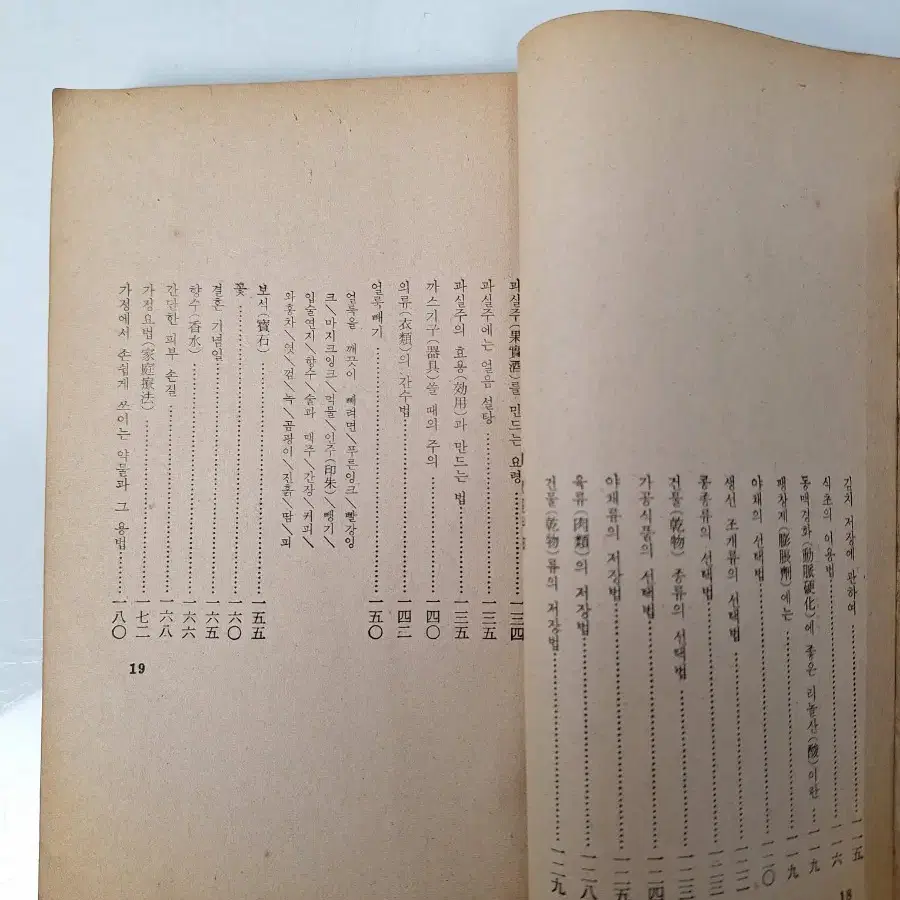 김치 저장에 관하여……一一五
식초의 이용법……一一六
동맥경화(動脈硬化)에 좋은 리놀산(酸)이란……一一九
팽창제(膨脹劑)에는……一一九
야채의 선택법……一二〇
생선 조개류의 선택법……一二二
콩종류의 선택법……一二三
건물(乾物) 종류의 선택법……一二三
가공식품의 선택법……一二四
야채류의 저장법……一二五
육류(肉類)의 저장법……一二八
건물(乾物)류의 저장법……一二九
18
과실주(果實酒)를 만드는 요령……一三四
과실주에는 얼음 설탕……一三五
과실주의 효용(効用)과 만드는 법……一三五
까스기구(器具)쓸 때의 주의……一四〇
의류(衣類)의 간수법……一四二
얼룩빼기……一五〇
얼룩을 깨끗이 빼려면/푸른잉크/빨강잉
크/마지크잉크/먹물/인주(印朱)/뺑기/
입술연지/향수/술과 맥주/간장/커피/
와홍차/엿/껌/녹/곰팡이/진흙/땀/피
보석(寶石)……一五五
꽃……一六〇
결혼 기념일……一六五
향수(香水)……一六六
간단한 피부 손질……一六八
가정요법(家庭療法)……一七二
가정에서 손쉽게 쓰이는 약물과 그 용법……一八〇
19